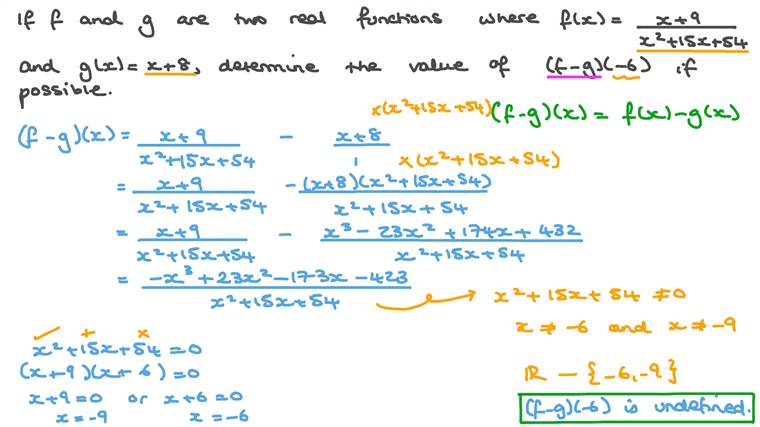 If f and g are two real functions where f(x) = x+9 / x²+15x+54
and g(x) = x+8, determine the value of (f-g)(-6) if
possible.
×(x²+15x+54) (f-g)(x) = f(x) - g(x)
(f-g)(x) = x+9 / x²+15x+54 - x+8 / 1 ×(x²+15x+54)
= x+9 / x²+15x+54 - (x+8)(x²+15x+54) / x²+15x+54
= x+9 / x²+15x+54 - x³ - 23x² + 174x + 432 / x²+15x+54
= -x³ + 23x² - 173x - 423 / x²+15x+54
x² + 15x + 54 ≠ 0
x ≠ -6 and x ≠ -9
ℝ - {-6, -9}
(f-g)(-6) is undefined.
✓ + ×
x² + 15x + 54 = 0
(x + 9)(x + 6) = 0
x + 9 = 0 or x + 6 = 0
x = -9 x = -6